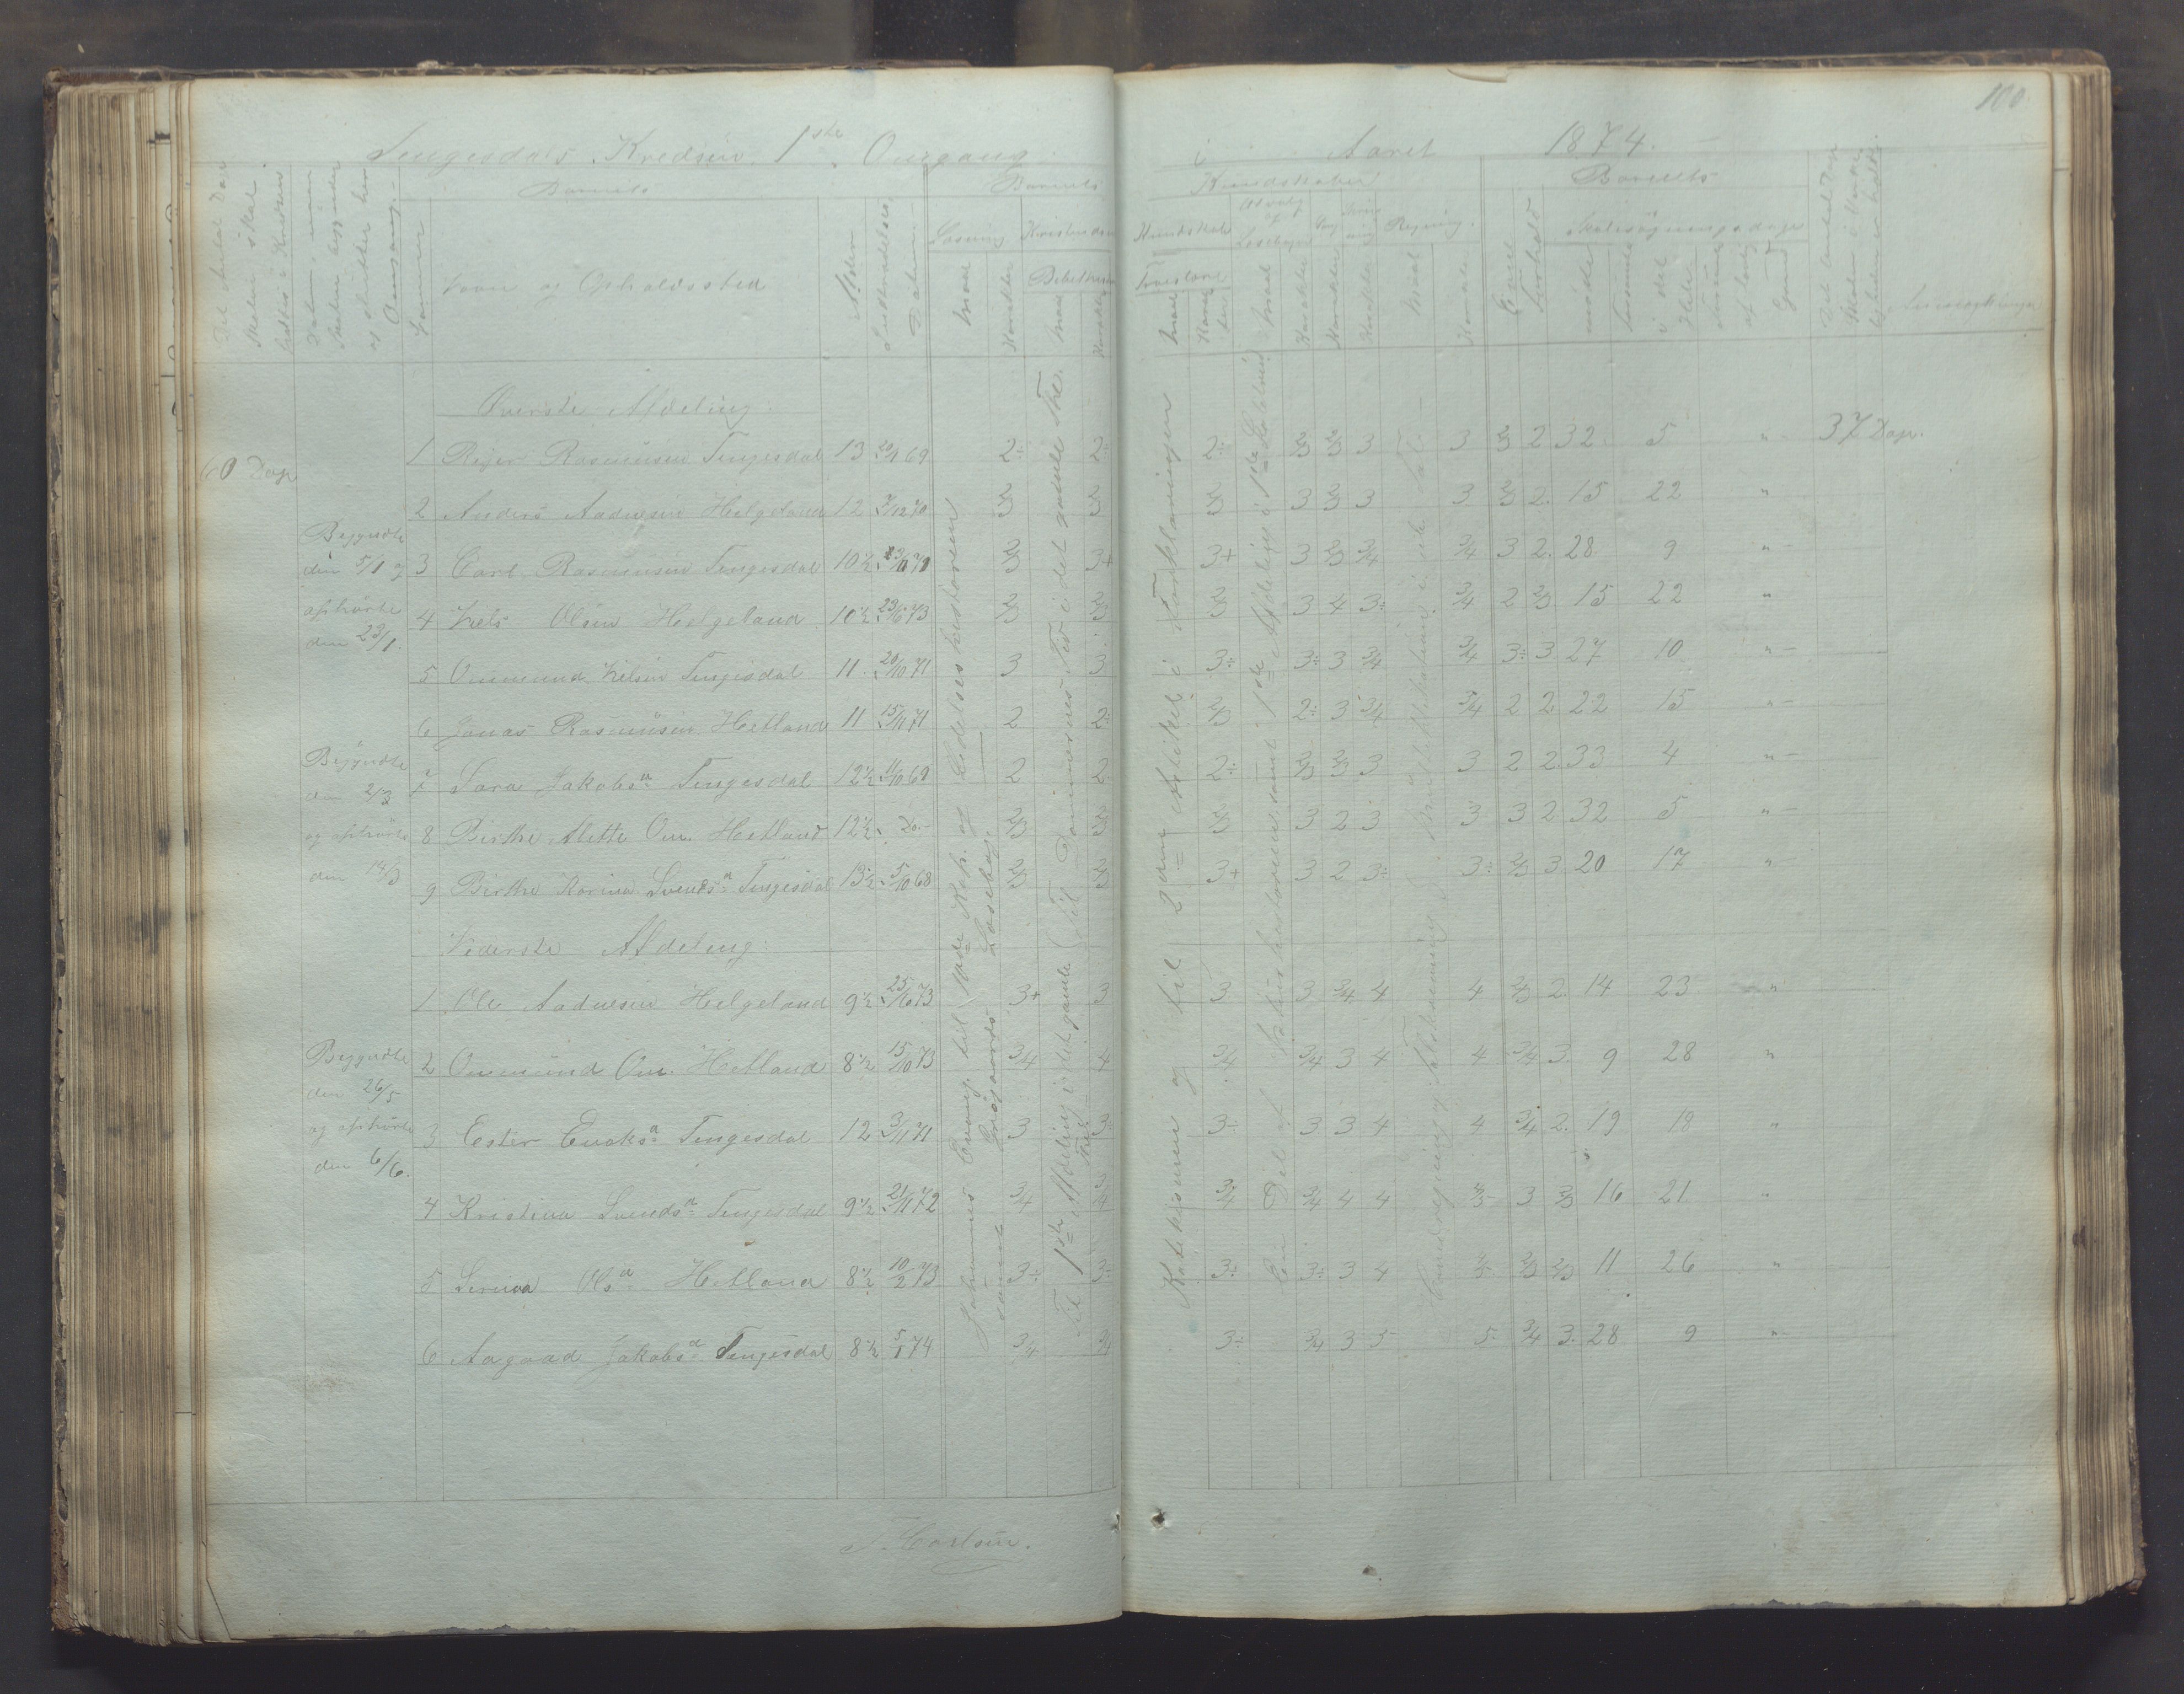 100
Tengesdals Kredsens 1ste Omgang
i Aaret 1874.
Det Antal Dage Skolen skal holdes i Kredsen
Datum, naar Skolen begynder og slutter hver Omgang.
Barnets
Barnets
Kundskaber
Barnets
Nummer
Navn og Opholdssted
Alder
Indtrædelses Datum
Læsning
Kristendom
Kundskab
Udvalg af Læsebogen
Sang
Skrivning
Regning.
Evne
Forhold
Skolesøgningsdage
mødte
forsømte
i det Hele
forsømte af lovlig Grund
Det Antal Dage Skolen i Virkeligheden er holdt
Anmærkninger
Maal
Karakter
Bibelhistorie
Troeslære
Øverste Afdeling.
60 Dage
1 Reier Rasmussen Tengesdal 13 20/1 69 2÷ 2÷ 2÷ 2/3 2/3 3 3 2/3 2 32 5 " 37 Dage.
2 Anders Aadnesen Helgeland 12 7/12 70 2/3 2/3 2/3 3 2/3 3 3 2/3 2. 15 22 "
3 Carl Rasmussen Tengesdal 10½ 2/3 3+ 3+ 3 2/3 3/4 3/4 3 2. 28 9 "
4 Niels Olsen Helgeland 10½ 23/6 73 2/3 2/3 2/3 3 4 3÷ 3/4 2 2/3 15 22 "
5 Ommund Nilsen Tengesdal 11 20/10 71 3 3÷ 3÷ 3÷ 3 3/4 3/4 3÷ 3 27 10 "
6 Jonas Rasmussen Hetland 11 15/11 71 2 2÷ 2/3 2÷ 3 3/4 3/4 2 2 22 15 "
7 Sara Jakobsa Tengesdal 12½ 11/10 69 2 2 2÷ 2/3 2/3 3 3 2 2 33 4 "
8 Birthe Mette Om. Hetland 12½ do.- 2/3 2/3 2/3 3 2 3 3 3 2 32 5 "
9 Birthe Karina Svendsa Tengesdal 13½ 5/10 68 2/3 2/3 3+ 3 2 3÷ 3÷ 2/3 3 20 17 "
Begyndte
den 5/1 og
ophörte
den 23/1.
Begyndte
den 2/3
og ophörte
den 14/3
Nederste Afdeling
1 Ole Aadnesen Helgeland 9½ 25/6 73 3+ 3 3 3 3/4 4 4 2/3 2. 14 23 "
2 Ommund Om. Hetland 8½ 15/10 73 3/4 4 3/4 3/4 3 4 4 3/4 3. 9 28 "
3 Ester Enoksa Tengesdal 12 3/11 71 3 3÷ 3÷ 3 3 4 4 3/4 2. 19 18 "
4 Kristina Svendsa Tengesdal 9½ 21/11 72 3/4 3/4 3/4 3/4 4 4 4/5 3 2/3 16 21 "
5 Serina Olsa Hetland 8½ 10/2 73 3÷ 3÷ 3÷ 3÷ 3 4 4/5 2/3 2/3 11 26 "
6 Aagaad Jakobsa Tengesdal 8½ 5/1 74 3/4 3/4 3÷ 3/4 3 5 5 3/4 3. 28 9 "
Begyndte
den 26/5
og ophörte
den 6/6.
Johannes Evang. til 10de Kap. og Lidelseshistorien
samt Læsebog
Til 1ste Afdeling i det gamle
Dommernes Tid i det gamle The.
Katekismen og til 2den Artikel i Forklaringen
En Del af 1ste Afdelings 1ste